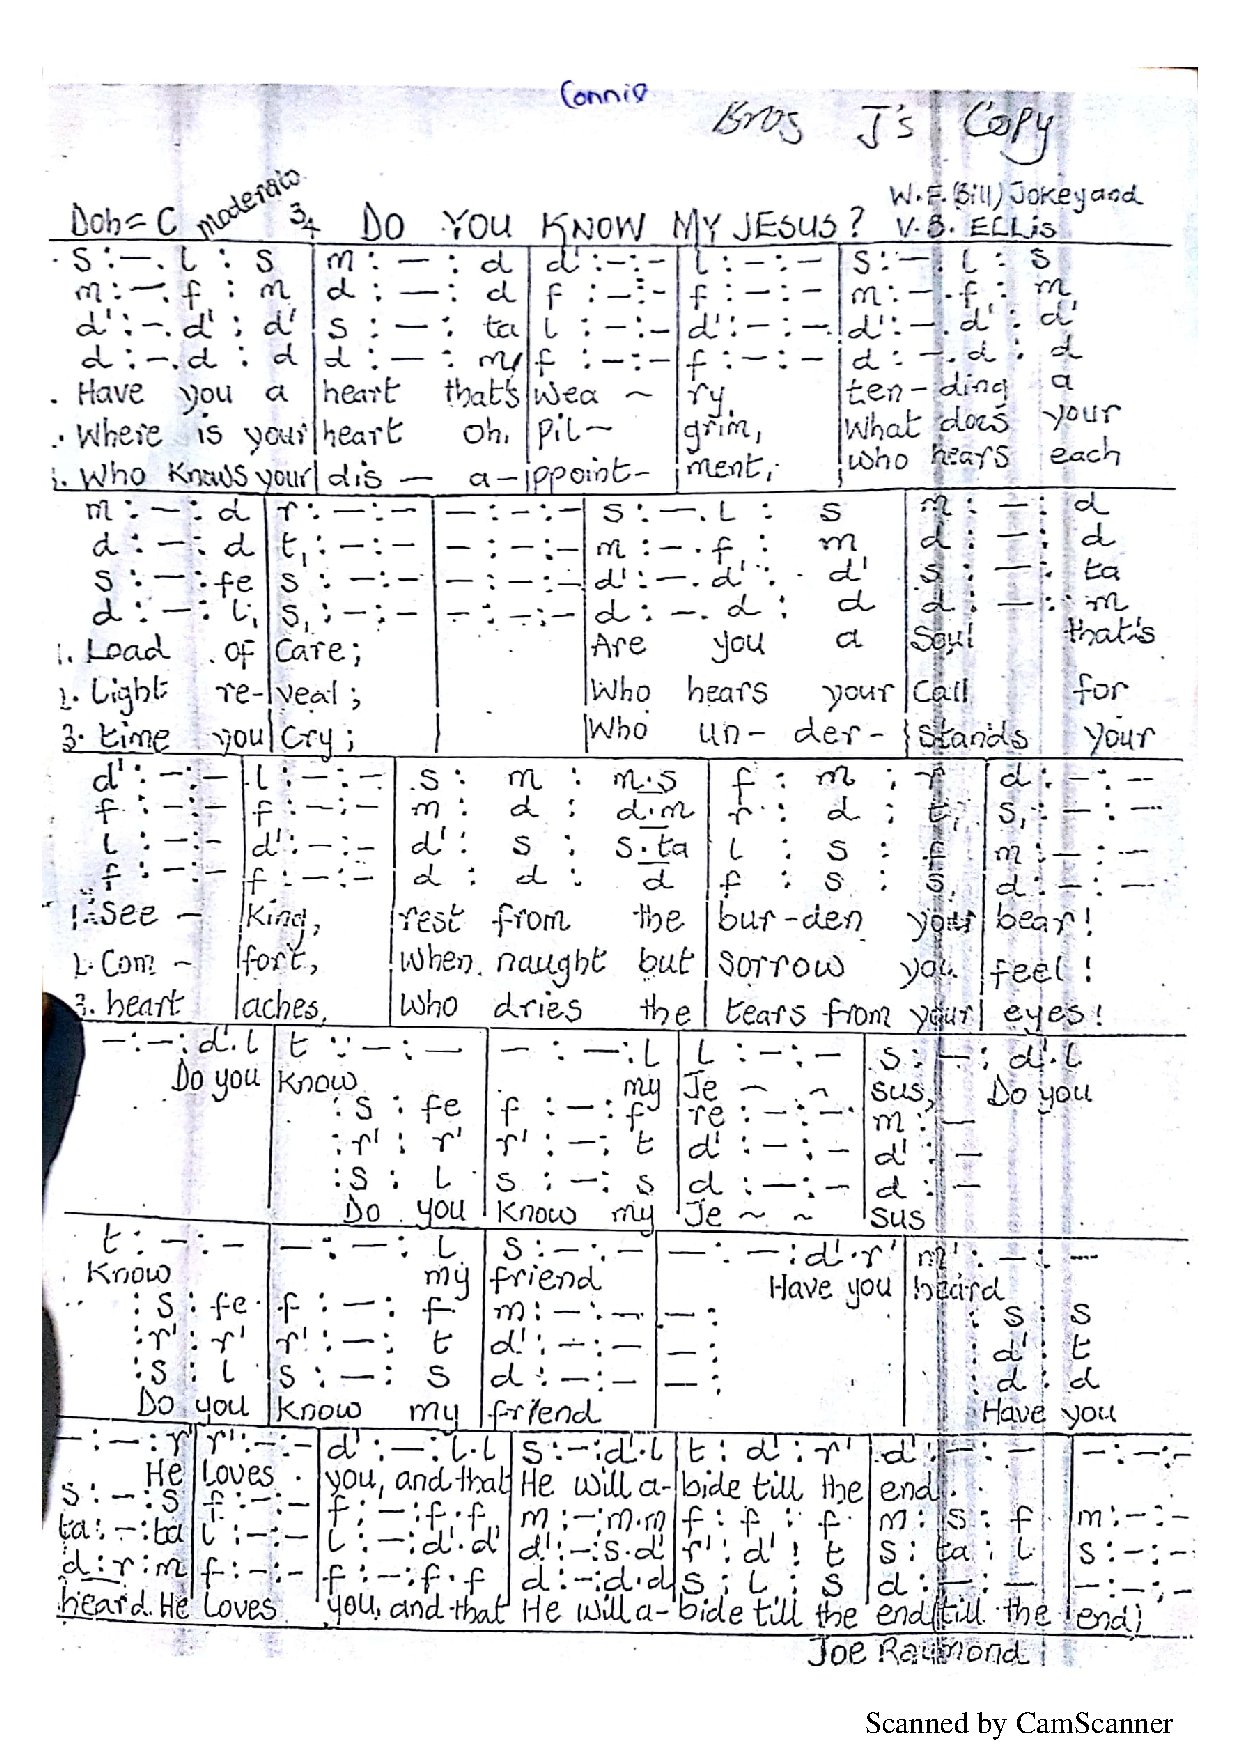 Connie
Bros J's Copy
Doh = C moderato 3/4 DO YOU KNOW MY JESUS? W.F. (Bill) Jokey and
V. B. ELLis
s :–. l : s | m : – : d | d' : – : – | l : – : – | s : –. l : s
m : –. f : m | d : – : d | f : – : – | f : – : – | m : –. f : m
d' : –. d' : d' | s : – : ta | l : – : – | d' : – : – | d' : –. d' : d'
d : –. d : d | d : – : m | f : – : – | f : – : – | d : –. d : d
. Have you a | heart that's | wea ~ | ry, | ten-ding a
Where is your | heart oh, | pil- | grim, | What does your
Who Knows your | dis – a- | ppoint- | ment, | Who hears each
m : – : d | r : – : – | – : – : – | s : –. l : s | m : – : d
d : – : d | t, : – : – | – : – : – | m : –. f : m | d : – : d
s : – : fe | s : – : – | – : – : – | d' : –. d' : d' | s : – : ta
d : – : l, | s, : – : – | – : – : – | d : –. d : d | d : – : m
1. Load of | Care; | | Are you a | Soul that's
2. Light re- | veal; | | Who hears your | Call for
3. time you | Cry; | | Who un- der- | Stands your
d' : – : – | l : – : – | s : m : m.s | f : m : r | d : – : –
f : – : – | f : – : – | m : d : d.m | r : d : t, | s, : – : –
l : – : – | d' : – : – | d' : s : s.ta | l : s : f | m : – : –
f : – : – | f : – : – | d : d : d | f : s : s, | d : – : –
1. See – | King, | rest from the | bur-den your | bear!
2. Com – | fort, | when naught but | Sorrow you | feel!
3. heart | aches, | who dries the | tears from your | eyes!
– : – : d'.l | t : – : – | – : – : l | l : – : – | s : – : d'.l
Do you | Know | my | Je ~ ~ | sus, Do you
: s : fe | f : – : f | re : – : – | m : –
: r' : r' | r' : – : t | d' : – : – | d' : –
: s : l | s : – : s | d : – : – | d : –
Do you | Know my | Je ~ ~ | sus
t : – : – | – : – : l | s : – : – | – : – : d'.r' | m' : – : –
Know | my | friend | Have you | heard
: s : fe | f : – : f | m : – : – | – : | : s : s
: r' : r' | r' : – : t | d' : – : – | – : | : d' : t
: s : l | s : – : s | d : – : – | – : | : d : d
Do you | Know my | friend | | Have you
– : – : r' | r' : – : – | d' : – : l.l | s : – : d'.l | t : d' : r' | d' : – : – | – : – : –
He | Loves | you, and that | He will a- | bide till the | end.
s : – : s | f : – : – | f : – : f.f | m : – : m.m | f : f : f | m : s : f | m : – : –
ta : – : ta | l : – : – | l : – : d'.d' | d' : – : s.d' | r' : d' : t | s : ta : l | s : – : –
d : r : m | f : – : – | f : – : f.f | d : – : d.d | s : l : s | d : – : – | – : – : –
heard. He | Loves | you, and that | He will a- | bide till the | end (till the | end)
Joe Raymond
Scanned by CamScanner